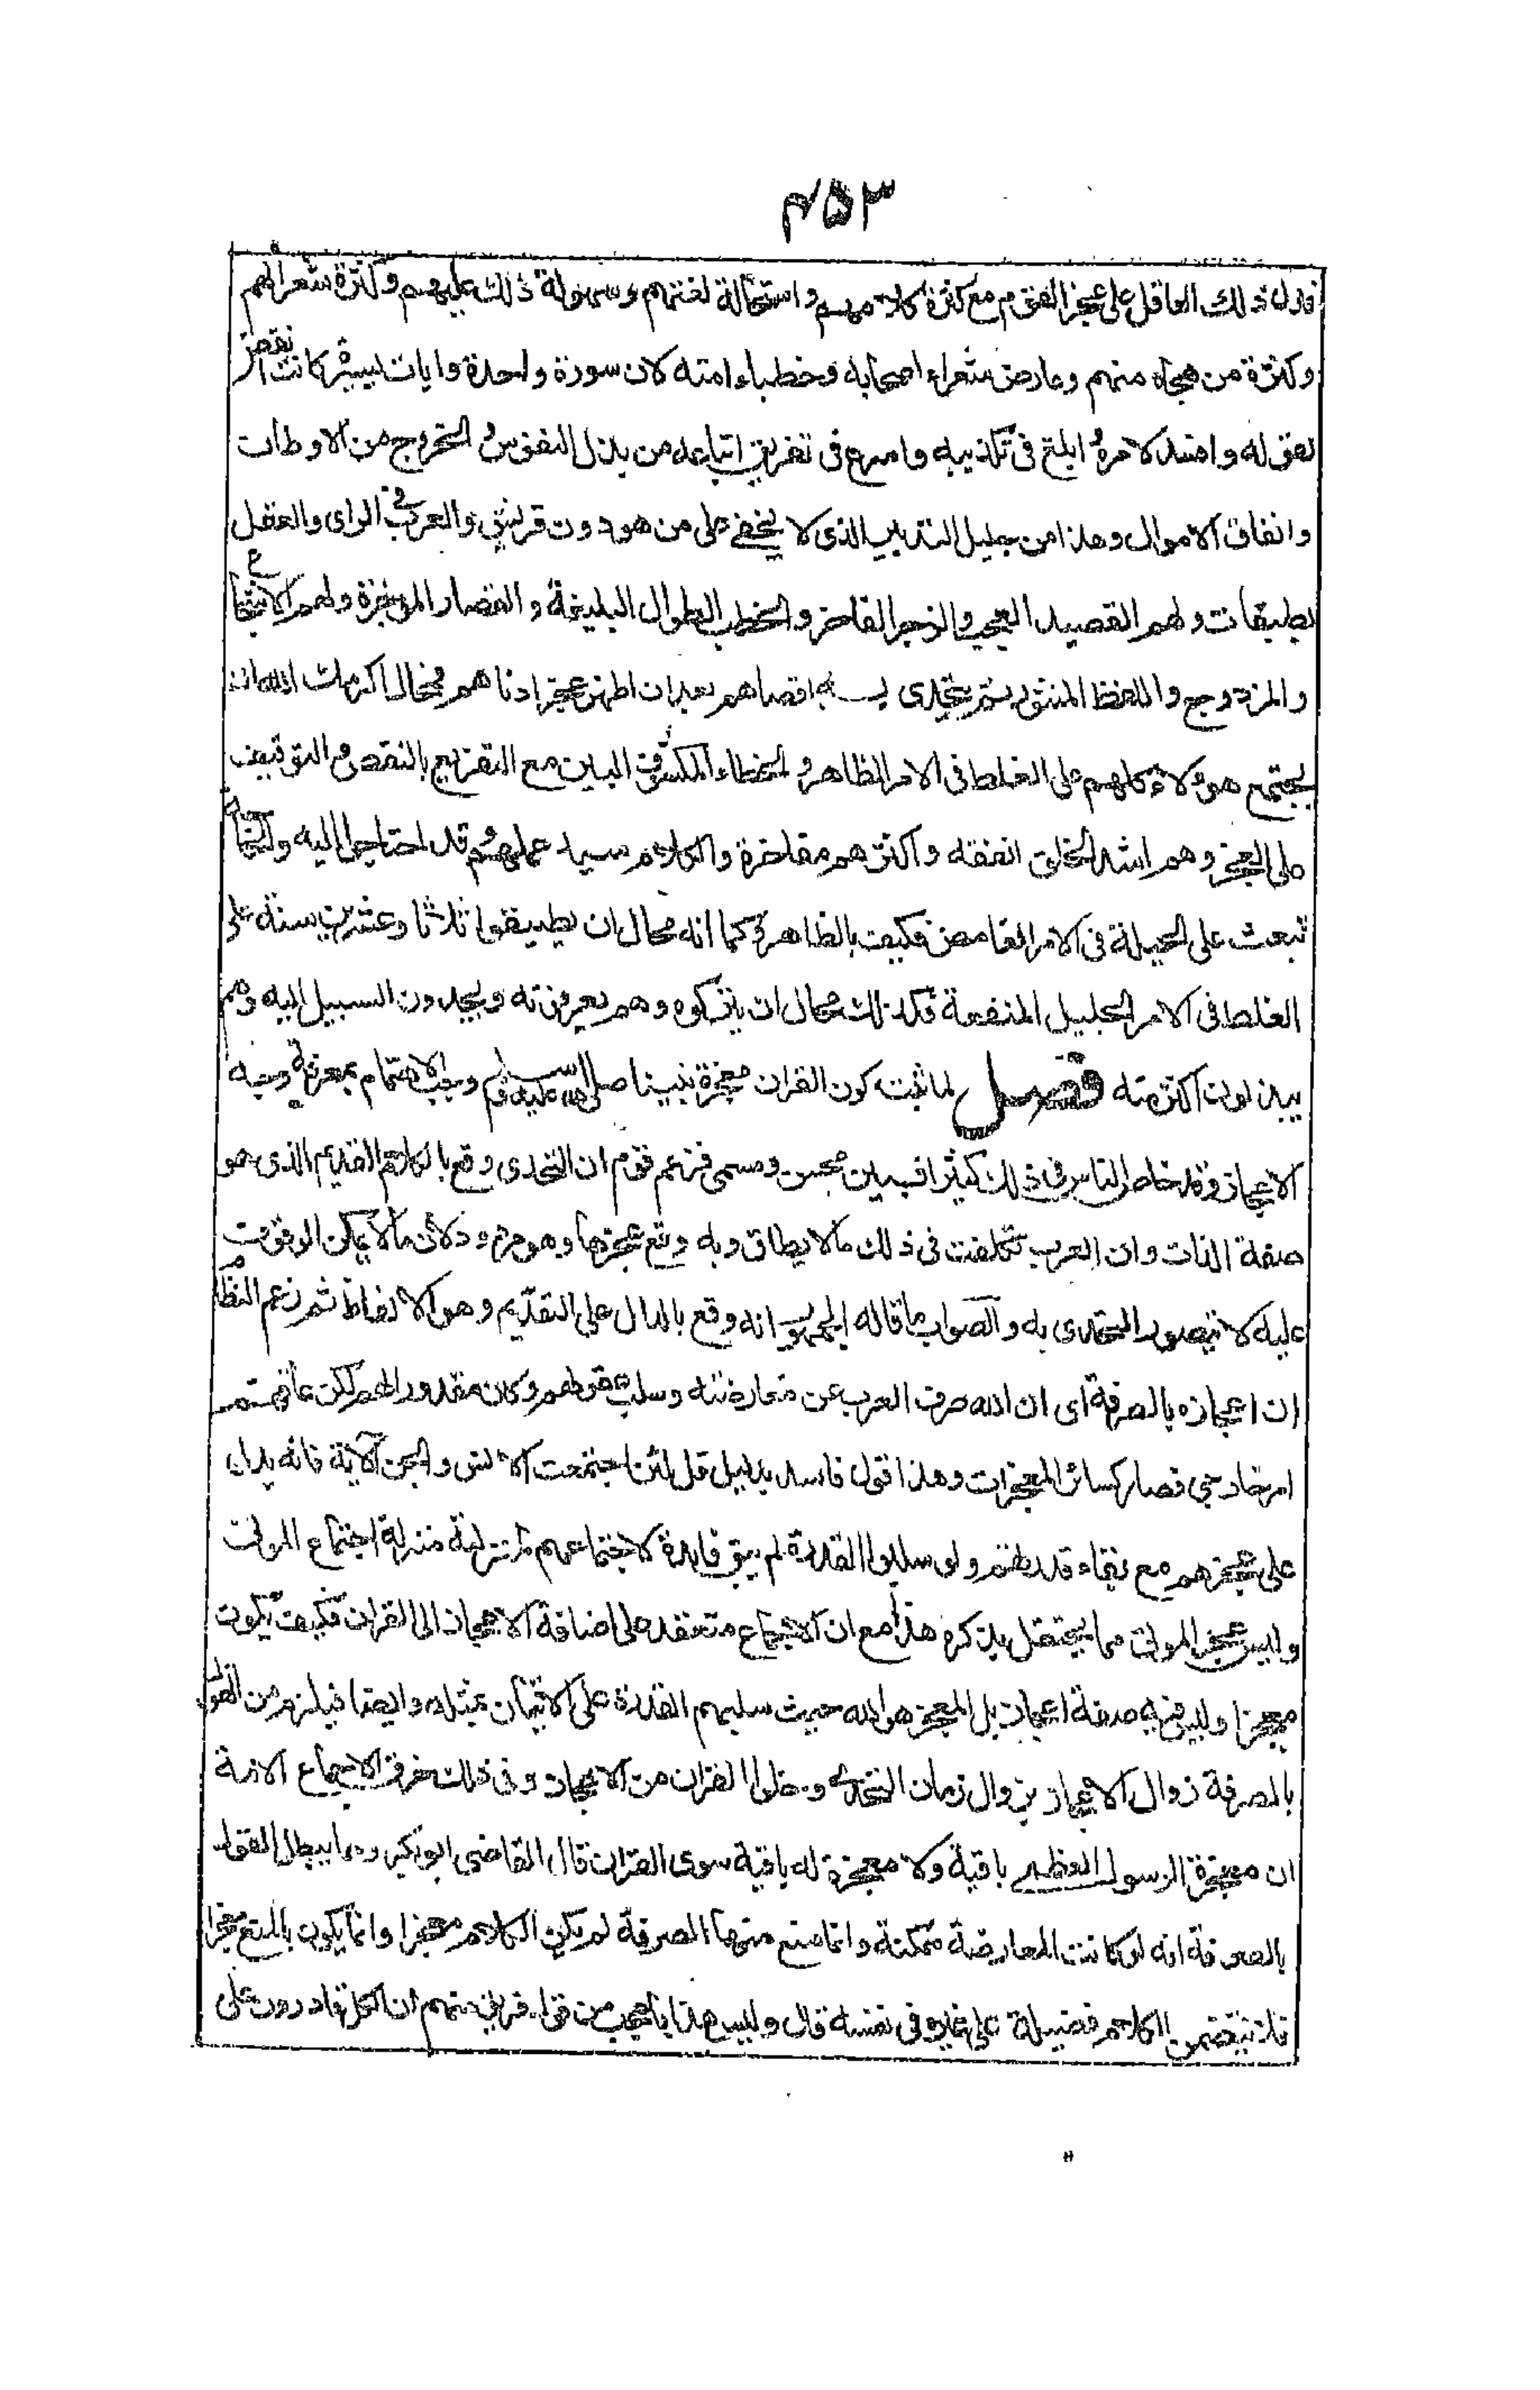 ٤٥٣
فدل ذلك العاقل على عجز القوم مع كثرة كلامهم واستحالة لغتهم وسهولة ذلك عليهم وكثرة شعرائهم
وكثرة من هجاه منهم وعارض شعراء اصحابه وخطباء امته لان سورة واحدة وايات يسيرة كانت انقض
لقوله وافسد لامره وابلغ فى تكذيبه واسرع فى تفريق اتباعه من بذل النفوس والخروج من الاوطان
وانفاق الاموال وهذا من جليل التدبير الذى لا يخفى على من هو دون قريش والعرب فى الراى والعقل
بطبقات ولهم القصيد العجيب والرجز الفاخر والخطب الطوال البليغة والقصار الموجزة ولهم الاسجاع
والمزدوج واللفظ المنثور ثم يتحدى به اقصاهم بعد ان اظهر عجز ادناهم فمحال اكرمك الله ان
يجتمع هؤلاء كلهم على الغلط فى الامر الظاهر والخطاء المكشوف البين مع التقريع بالنقص والتوقيف
على العجز وهم اشد الخلق انفة واكثرهم مفاخرة والكلام سيد عملهم وقد احتاجوا اليه والحاجة
تبعث على الحيلة فى الامر الغامض فكيف بالظاهر وكما انه محال ان يطيقوا ثلاثا وعشرين سنة على
الغلط فى الامر الجليل المنفعة فكذلك محال ان يتركوه وهم يعرفونه ويجدون السبيل اليه وهم
يبذلون اكثر منه فصل لما ثبت كون القران معجزة نبينا صلى الله عليه وسلم وجب الاهتمام بمعرفة وجه
الاعجاز وقد خاض الناس فى ذلك كثيرا فبين محسن ومسئ فزعم قوم ان التحدى وقع بالكلام القديم الذى هو
صفة الذات وان العرب تكلفت فى ذلك ما لا يطاق وبه وقع عجزها وهو مردود لان ما لا يمكن الوقوف
عليه لا يتصور التحدى به والصواب ما قاله الجمهور انه وقع بالدال على القديم وهو الالفاظ ثم زعم النظام
ان اعجازه بالصرفة اى ان الله صرف العرب عن معارضته وسلب عقولهم وكان مقدورا لهم لكن عاقهم
امر خارجى فصار كسائر المعجزات وهذا قول فاسد بدليل قل لئن اجتمعت الانس والجن الاية فانه يدل
على عجزهم مع بقاء قدرتهم ولو سلبوا القدرة لم يبق فايدة لاجتماعهم لمنزلته منزلة اجتماع الموتى
وليس عجز الموتى مما يحتفل بذكره هذا مع ان الاجماع منعقد على اضافة الاعجاز الى القران فكيف يكون
معجزا وليس فيه صفة اعجاز بل المعجز هو الله حيث سلبهم القدرة على الاتيان بمثله وايضا فيلزم من القول
بالصرفة زوال الاعجاز بزوال زمان التحدى وخلو القران من الاعجاز وفى ذلك خرق لاجماع الامة
ان معجزة الرسول العظمى باقية ولا معجزة له باقية سوى القران قال القاضى ابوبكر ومما يبطل القول
بالصرفة انه لو كانت المعارضة ممكنة وانما منع منها الصرفة لم يكن الكلام معجزا وانما يكون بالمنع معجزا
فلا يتضمن الكلام فضيلة على غيره فى نفسه قال وليس هذا باعجب من قول فريق منهم ان الكل قادرون على